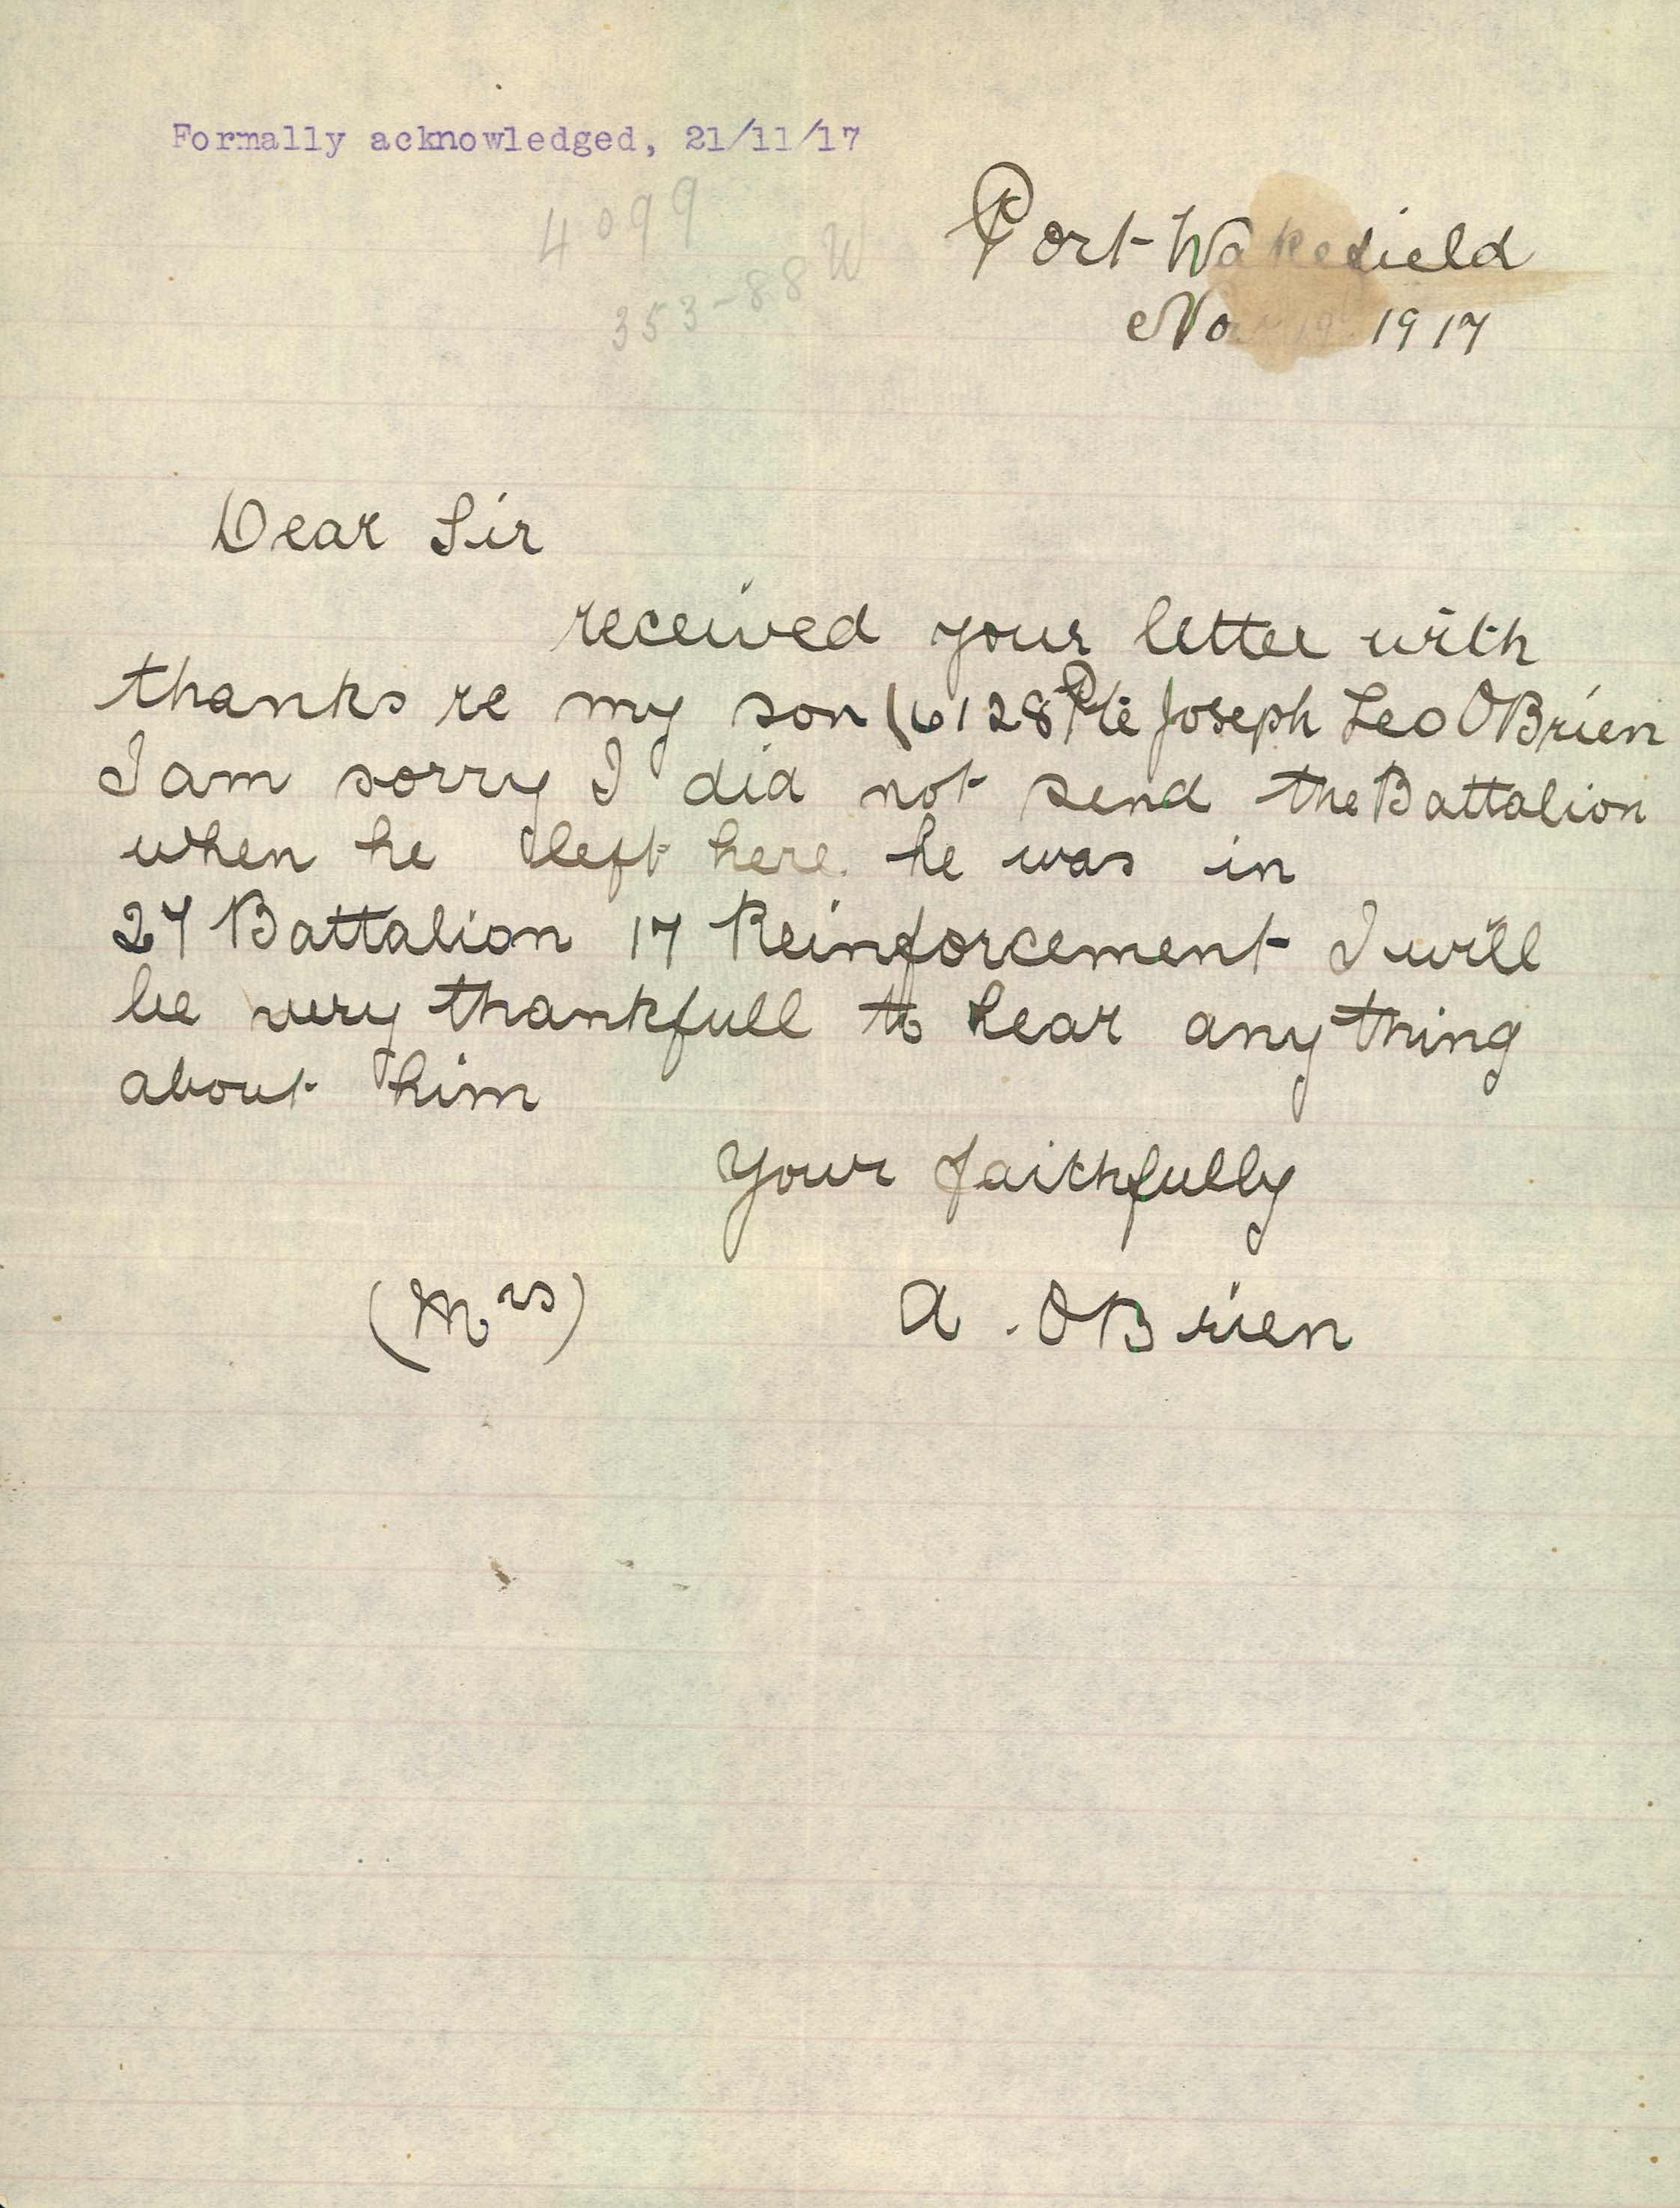 Formally acknowledged, 21/11/17
4099
353-88 W
Port Wakefield
Nov 1917
Dear Sir
received your letter with
thanks re my son (6128 Pte Joseph Leo OBrien
I am sorry I did not send the Battalion
when he left here. he was in
27 Battalion 17 Reinforcement I will
be very thankfull to hear any thing
about him
Your faithfully
(Mrs) A. OBrien